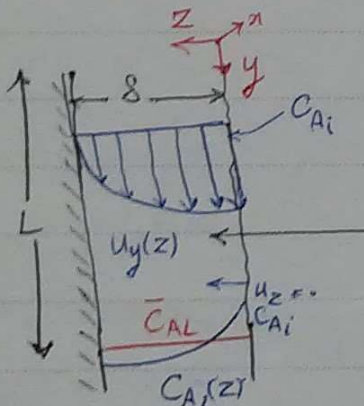 z x
y
δ
C_Ai
L
u_y(z)
u_z = ..
C_Ai
C̄_AL
C_A,(z)